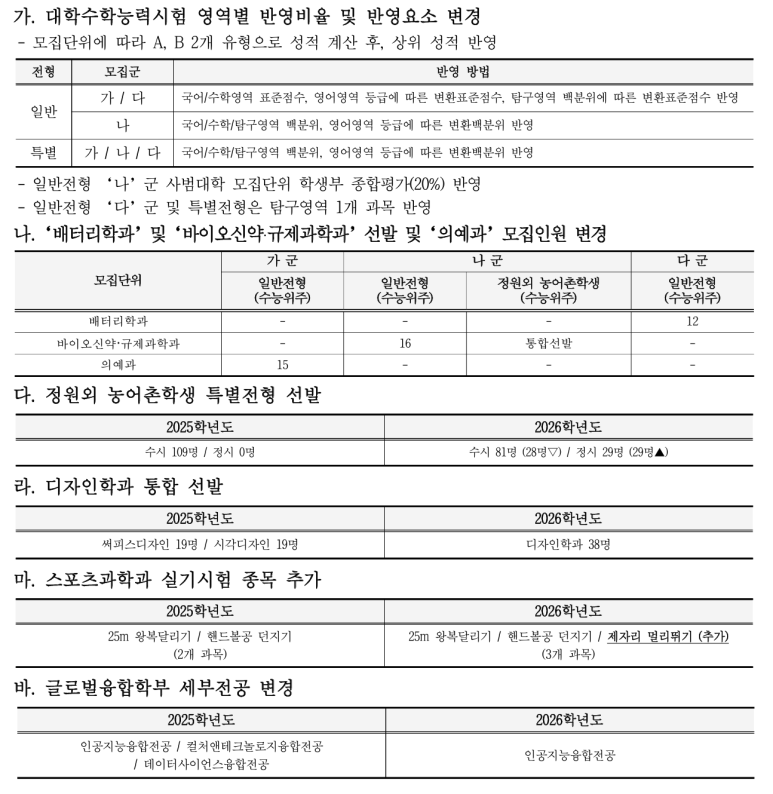 가. 대학수학능력시험 영역별 반영비율 및 반영요소 변경
- 모집단위에 따라 A, B 2개 유형으로 성적 계산 후, 상위 성적 반영
전형 모집군 반영 방법
일반 가 / 다 국어/수학영역 표준점수, 영어영역 등급에 따른 변환표준점수, 탐구영역 백분위에 따른 변환표준점수 반영
나 국어/수학/탐구영역 백분위, 영어영역 등급에 따른 변환백분위 반영
특별 가 / 나 / 다 국어/수학/탐구영역 백분위, 영어영역 등급에 따른 변환백분위 반영
- 일반전형 ‘나’군 사범대학 모집단위 학생부 종합평가(20%) 반영
- 일반전형 ‘다’군 및 특별전형은 탐구영역 1개 과목 반영
나. ‘배터리학과’ 및 ‘바이오신약·규제과학과’ 선발 및 ‘의예과’ 모집인원 변경
모집단위 가 군 나 군 다 군
일반전형 (수능위주) 일반전형 (수능위주) 정원외 농어촌학생 (수능위주) 일반전형 (수능위주)
배터리학과 - - - 12
바이오신약·규제과학과 - 16 통합선발 -
의예과 15 - - -
다. 정원외 농어촌학생 특별전형 선발
2025학년도 2026학년도
수시 109명 / 정시 0명 수시 81명 (28명▽) / 정시 29명 (29명▲)
라. 디자인학과 통합 선발
2025학년도 2026학년도
써피스디자인 19명 / 시각디자인 19명 디자인학과 38명
마. 스포츠과학과 실기시험 종목 추가
2025학년도 2026학년도
25m 왕복달리기 / 핸드볼공 던지기 25m 왕복달리기 / 핸드볼공 던지기 / 제자리 멀리뛰기 (추가)
(2개 과목) (3개 과목)
바. 글로벌융합학부 세부전공 변경
2025학년도 2026학년도
인공지능융합전공 / 컬처앤테크놀로지융합전공
/ 데이터사이언스융합전공 인공지능융합전공